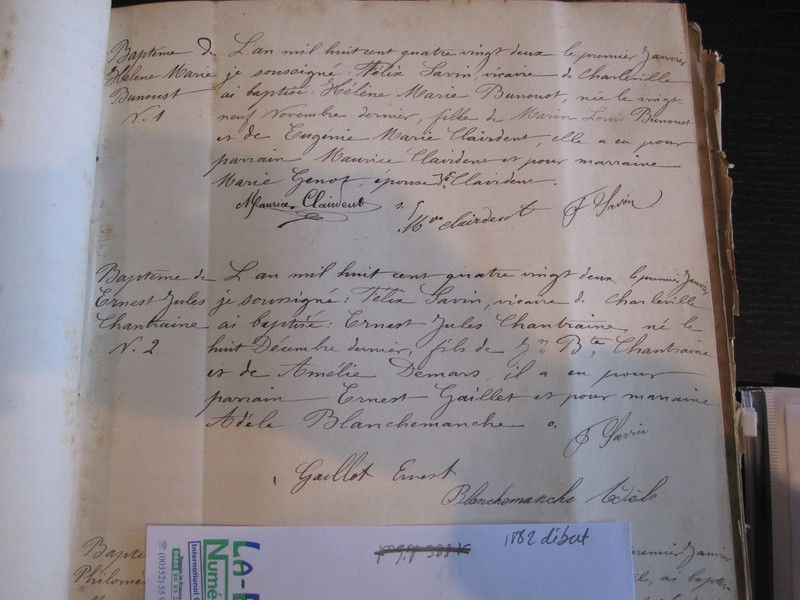 Baptême de
Hélène Marie
Bunoust
N. 1
L'an mil huit cent quatre vingt deux le premier Janvier
je soussigné : Félix Savin, vicaire de Charleville
ai baptisé : Hélène Marie Bunoust, née le vingt-
neuf Novembre dernier, fille de Marin Louis Bunoust
et de Eugénie Marie Clairdent, elle a eu pour
parrain Maurice Clairdent et pour marraine
Marie Genot, épouse Clairdent.
Maurice Clairdent
Clairdent
F Savin
Baptême de
Ernest Jules
Chantraine
N. 2
L'an mil huit cent quatre vingt deux, le premier Janvier
je soussigné : Félix Savin, vicaire de Charleville
ai baptisé : Ernest Jules Chantraine, né le
huit Décembre dernier, fils de Jn Bte Chantraine
et de Amélie Demars, il a eu pour
parrain Ernest Gaillot et pour marraine
Adèle Blanchemanche
F Savin
Gaillot Ernest
Blanchemanche Adèle
1782 début
LA-
Numé
International
(00352) 55
premier Janvier
Philomè
ai bapti-